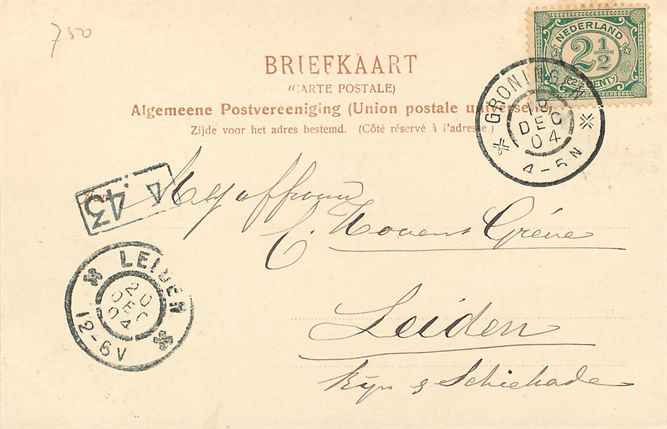 750
NEDERLAND
2½
CENT
BRIEFKAART
(CARTE POSTALE)
Algemeene Postvereeniging (Union postale universelle)
Zijde voor het adres bestemd. (Côté réservé à l'adresse)
GRONINGEN
19
DEC
04
4-5N
43
Mejuffrouw
C. Kouens Gréve
Leiden
Rijn & Schiekade
LEIDEN
20
DEC
04
12-6V